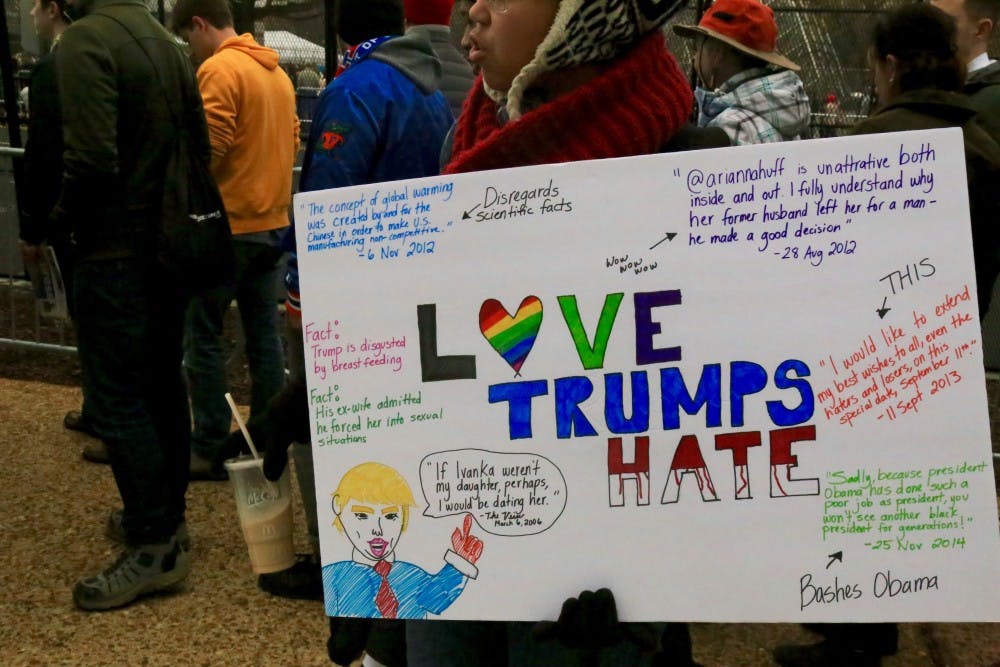 "The concept of global warming
was created by and for the
Chinese in order to make U.S.
manufacturing non-competitive."
- 6 Nov 2012
Disregards
scientific facts
"@ariannahuff is unattrative both
inside and out. I fully understand why
her former husband left her for a man -
he made a good decision"
- 28 Aug 2012
wow
wow
wow
THIS
"I would like to extend
my best wishes to all, even the
haters and losers, on this
special date, September 11th."
- 11 Sept 2013
Fact:
Trump is disgusted
by breastfeeding
Fact:
His ex-wife admitted
he forced her into sexual
situations
LOVE
TRUMPS
HATE
"If Ivanka weren't
my daughter, perhaps,
I would be dating her."
- The View
March 6, 2006
"Sadly, because president
Obama has done such a
poor job as president, you
won't see another black
president for generations!"
- 25 Nov 2014
Bashes Obama